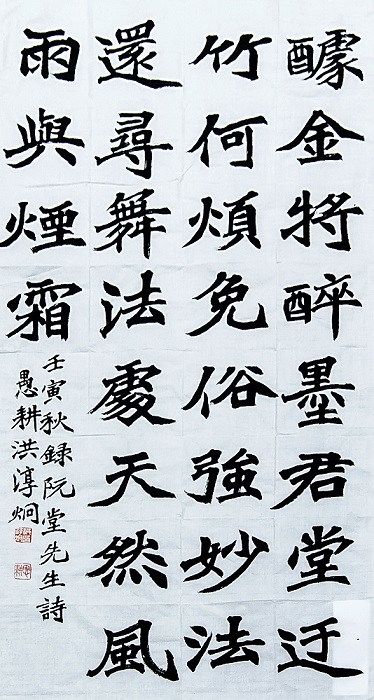 醵金將醉墨君堂迂
竹何煩免俗強妙法
還尋舞法處天然風
雨與煙霜
壬寅秋錄阮堂先生詩
愚耕洪淳炯